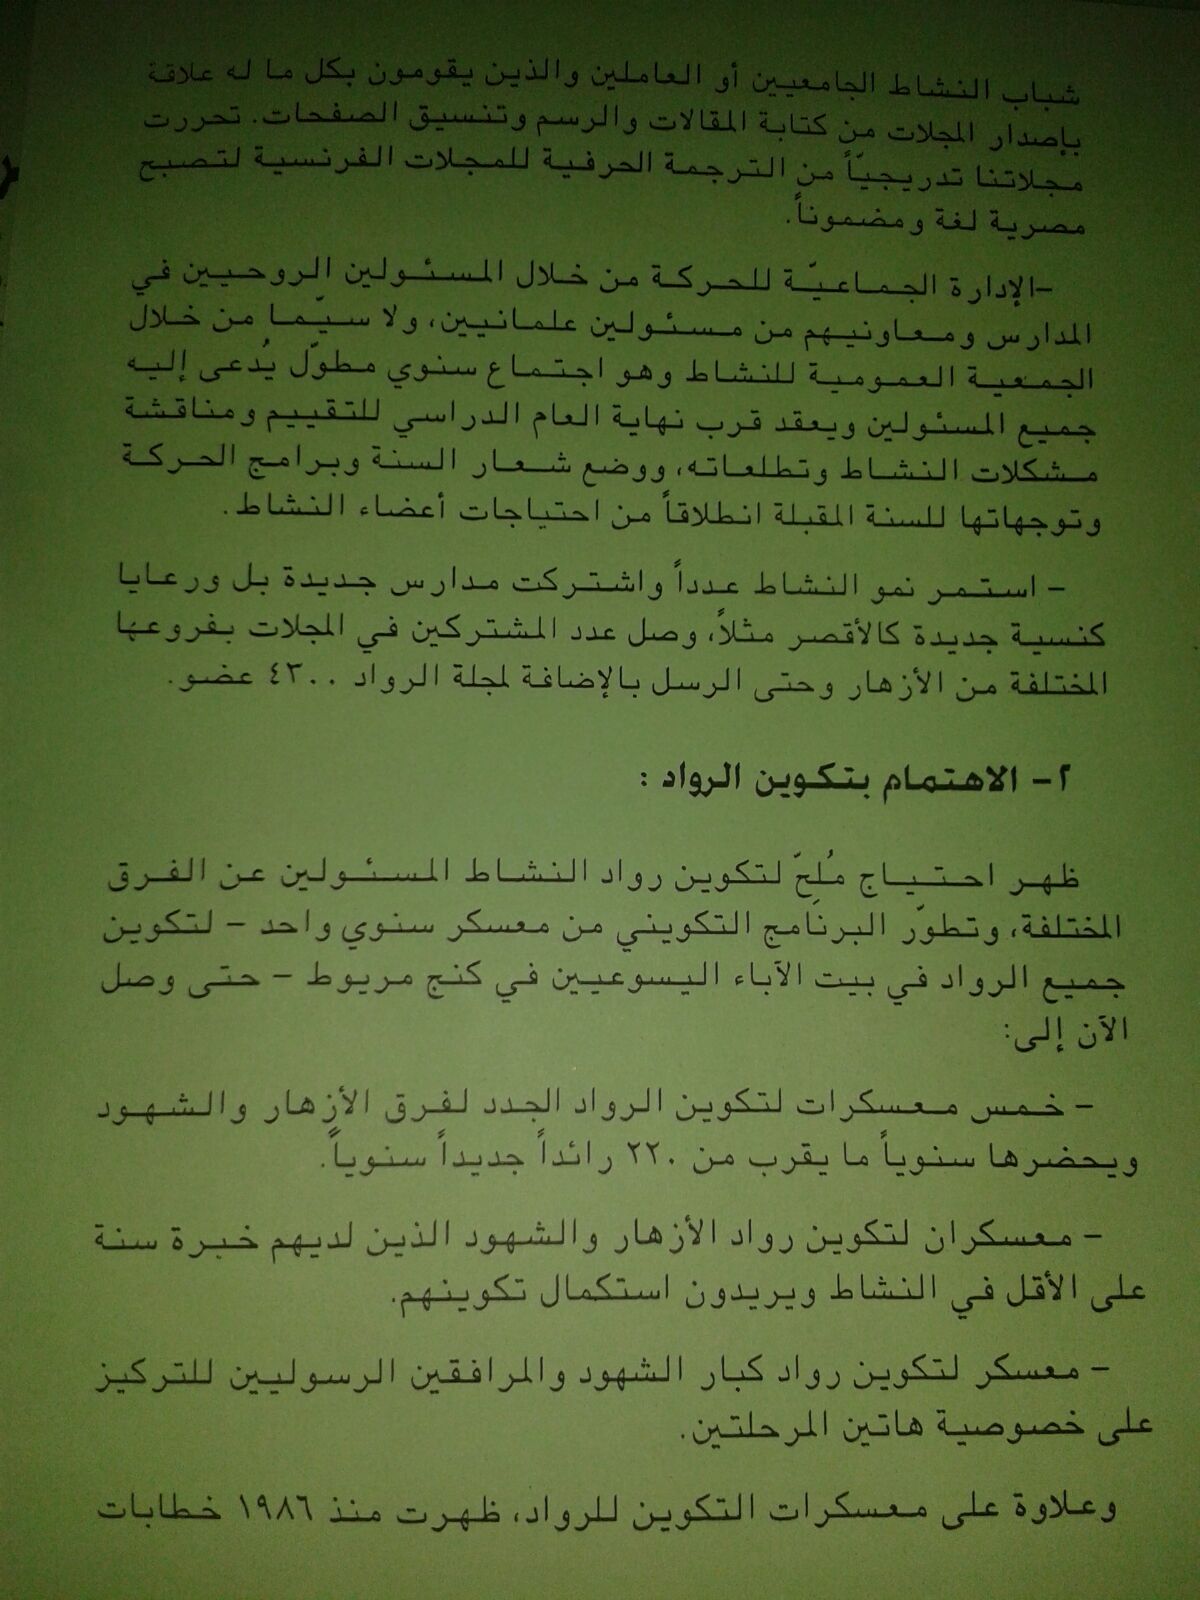 شباب النشاط الجامعيين أو العاملين والذين يقومون بكل ما له علاقة
بإصدار المجلات من كتابة المقالات والرسم وتنسيق الصفحات. تحررت
مجلاتنا تدريجيّاً من الترجمة الحرفية للمجلات الفرنسية لتصبح
مصرية لغة ومضموناً.
-الإدارة الجماعيّة للحركة من خلال المسئولين الروحيين في
المدارس ومعاونيهم من مسئولين علمانيين، ولا سيّما من خلال
الجمعية العمومية للنشاط وهو اجتماع سنوي مطوّل يُدعى إليه
جميع المسئولين ويعقد قرب نهاية العام الدراسي للتقييم ومناقشة
مشكلات النشاط وتطلعاته، ووضع شعار السنة وبرامج الحركة
وتوجهاتها للسنة المقبلة انطلاقاً من احتياجات أعضاء النشاط.
- استمر نمو النشاط عدداً واشتركت مدارس جديدة بل ورعايا
كنسية جديدة كالأقصر مثلاً، وصل عدد المشتركين في المجلات بفروعها
المختلفة من الأزهار وحتى الرسل بالإضافة لمجلة الرواد ٤٣٠٠ عضو.
٢- الاهتمام بتكوين الرواد :
ظهر احتياج مُلِحّ لتكوين رواد النشاط المسئولين عن الفرق
المختلفة، وتطوّر البرنامج التكويني من معسكر سنوي واحد - لتكوين
جميع الرواد في بيت الآباء اليسوعيين في كنج مريوط - حتى وصل
الآن إلى:
- خمس معسكرات لتكوين الرواد الجدد لفرق الأزهار والشهود
ويحضرها سنوياً ما يقرب من ٢٢٠ رائداً جديداً سنوياً.
- معسكران لتكوين رواد الأزهار والشهود الذين لديهم خبرة سنة
على الأقل في النشاط ويريدون استكمال تكوينهم.
- معسكر لتكوين رواد كبار الشهود والمرافقين الرسوليين للتركيز
على خصوصية هاتين المرحلتين.
وعلاوة على معسكرات التكوين للرواد، ظهرت منذ ١٩٨٦ خطابات